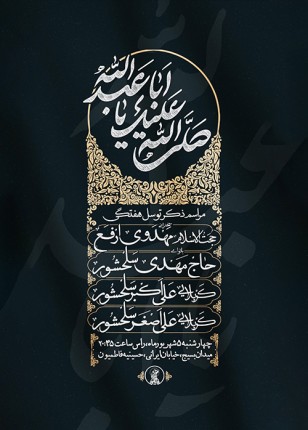 صلی الله علیک یا
ابا عبد الله
مراسم ذکر توسل هفتگی
حجت الاسلام مهدوی ارفع
حاج مهدی سلحشور
کربلایی علی اکبر سلحشور
کربلایی علی اصغر سلحشور
چهارشنبه ۵ شهریور ماه، راس ساعت ۲۰:۳۵
میدان بسیج، خیابان ایرانی، حسینیه فاطمیون